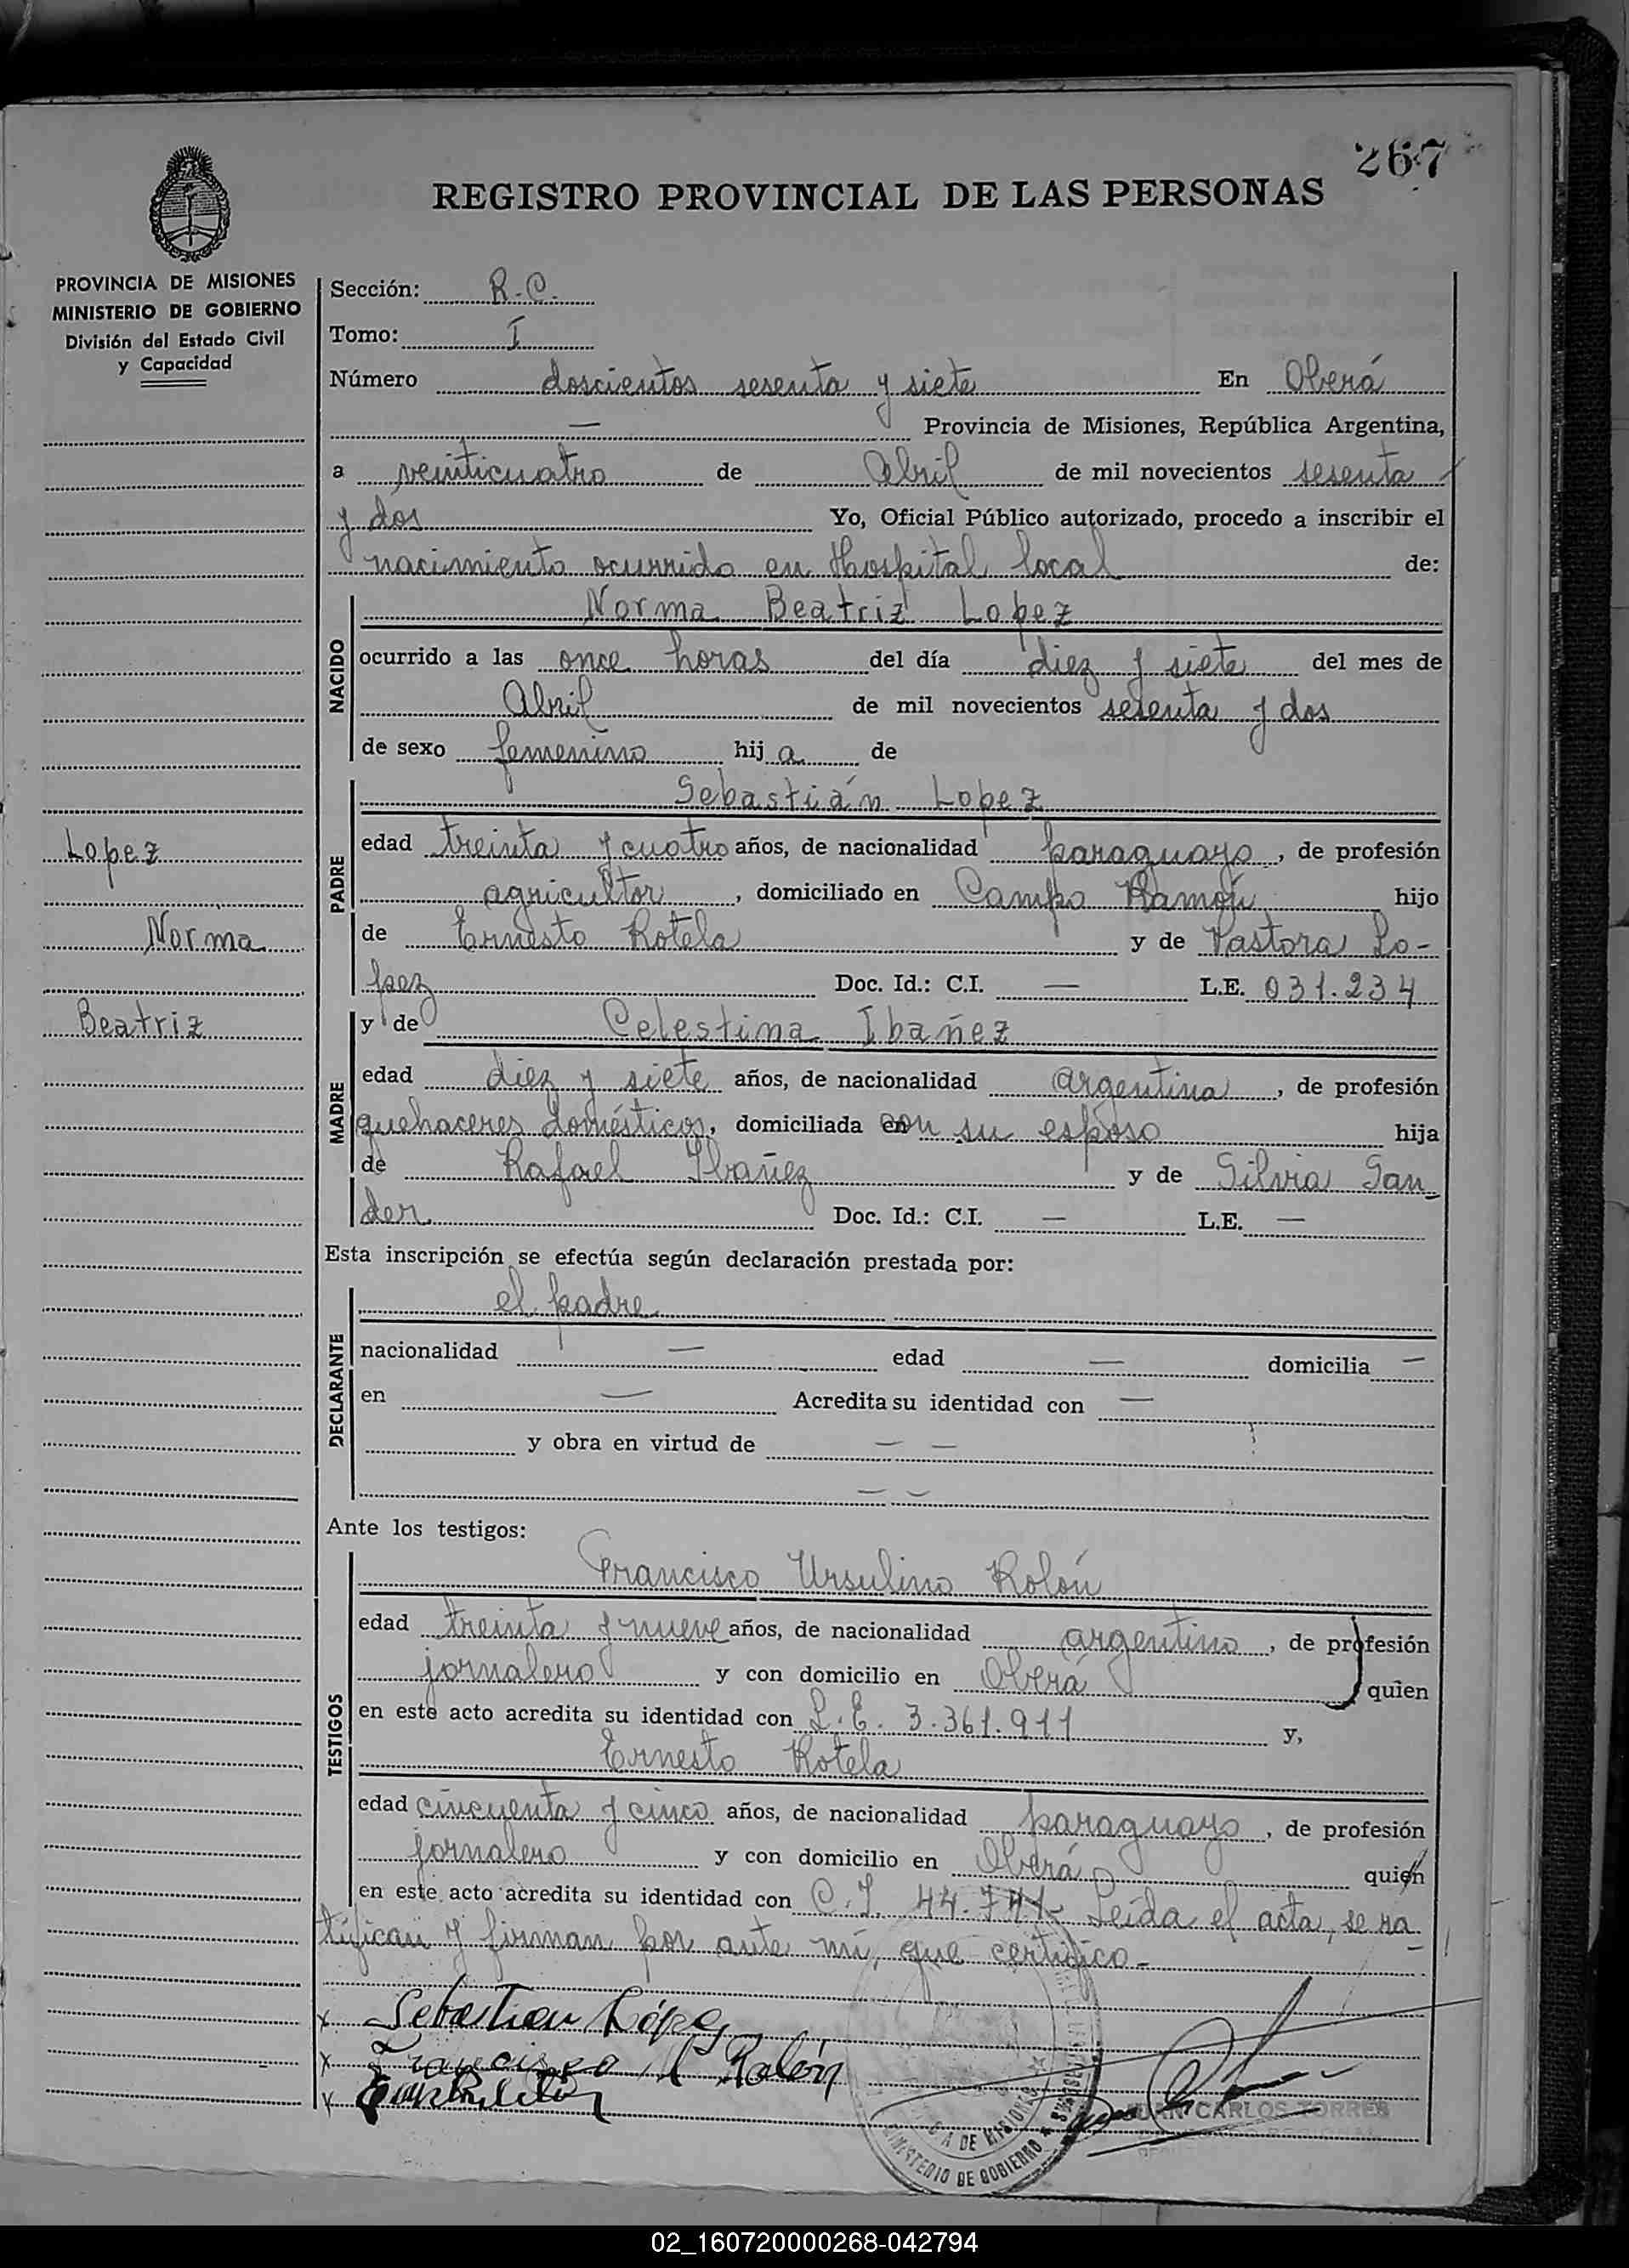 267
REGISTRO PROVINCIAL DE LAS PERSONAS
PROVINCIA DE MISIONES
MINISTERIO DE GOBIERNO
División del Estado Civil
y Capacidad
Lopez
Norma
Beatriz
Sección: R.C.
Tomo: I
Número doscientos sesenta y siete En Oberá
— Provincia de Misiones, República Argentina,
a veinticuatro de Abril de mil novecientos sesenta
y dos Yo, Oficial Público autorizado, procedo a inscribir el
nacimiento ocurrido en Hospital local de:
NACIDO
Norma Beatriz Lopez
ocurrido a las once horas del día diez y siete del mes de
Abril de mil novecientos sesenta y dos
de sexo femenino hija de
PADRE
Sebastián Lopez
edad treinta y cuatro años, de nacionalidad paraguayo, de profesión
agricultor, domiciliado en Campo Ramón hijo
de Ernesto Rotela y de Pastora Lo-
pez Doc. Id.: C.I. — L.E. 031.234
MADRE
y de Celestina Ibañez
edad diez y siete años, de nacionalidad argentina, de profesión
quehaceres domésticos, domiciliada con su esposo hija
de Rafael Ibañez y de Silvia San-
der Doc. Id.: C.I. — L.E. —
Esta inscripción se efectúa según declaración prestada por:
DECLARANTE
el padre
nacionalidad — edad — domicilia —
en — Acredita su identidad con —
y obra en virtud de — —
— —
Ante los testigos:
TESTIGOS
Francisco Ursulino Rolón
edad treinta y nueve años, de nacionalidad argentino, de profesión
jornalero y con domicilio en Oberá quien
en este acto acredita su identidad con L.E. 3.361.911 y,
Ernesto Rotela
edad cincuenta y cinco años, de nacionalidad paraguayo, de profesión
jornalero y con domicilio en Oberá quien
en este acto acredita su identidad con C.I. 44.741- Leída el acta, se ra-
tifican y firman por ante mí, que certifico-
x Sebastian López
x Francisco U Rolón
x
MINISTERIO DE GOBIERNO
A DE MISIONES
JUAN CARLOS TORRES
02_160720000268-042794